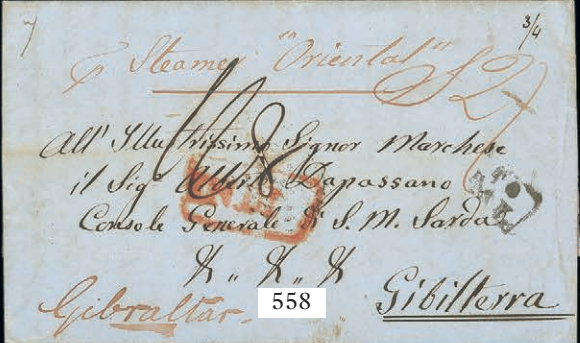 3/4
p Steamer "Oriental"
All' Illustrissimo Signor Marchese
il Sigr Alberto Dapassano
Console Generale di S. M. Sarda
& " & " &
Gibilterra
Gibraltar.
558